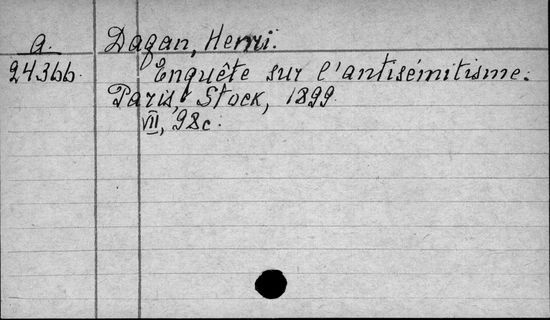 a. Dagan, Henri.
24366. Enquête sur l'antisémitisme.
Paris, Stock, 1899.
VII, 98c.